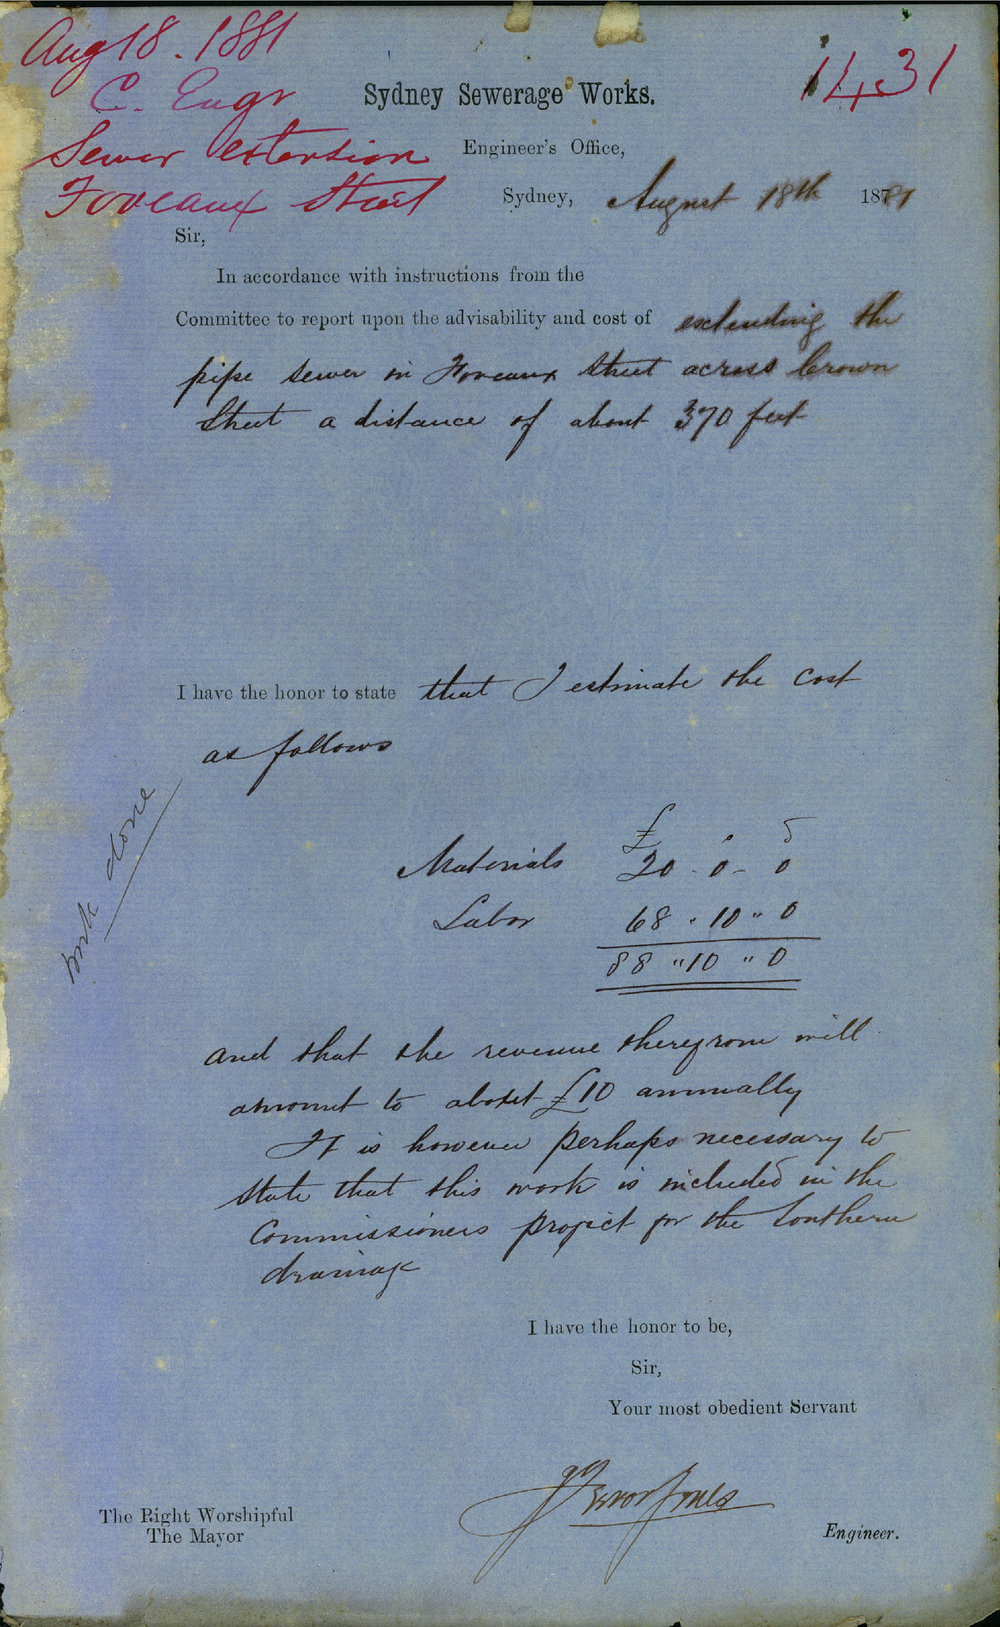 Aug 18. 1881
C. Engr
Sewer extension
Foveaux Street
1431
Sydney Sewerage Works.
Engineer's Office,
Sydney, August 18th 1881
Sir,
In accordance with instructions from the
Committee to report upon the advisability and cost of extending the
pipe sewer in Foveaux Street across Crown
Street a distance of about 370 feet
I have the honor to state that I estimate the cost
as follows
£ s d
Materials 20 - 0 - 0
Labor 68 " 10 " 0
88 " 10 " 0
work done
and that the revenue therefrom will
amount to about £10 annually
It is however perhaps necessary to
state that this work is included in the
Commissioners project for the Southern
drainage
I have the honor to be,
Sir,
Your most obedient Servant
J Trevor Jones
Engineer.
The Right Worshipful
The Mayor